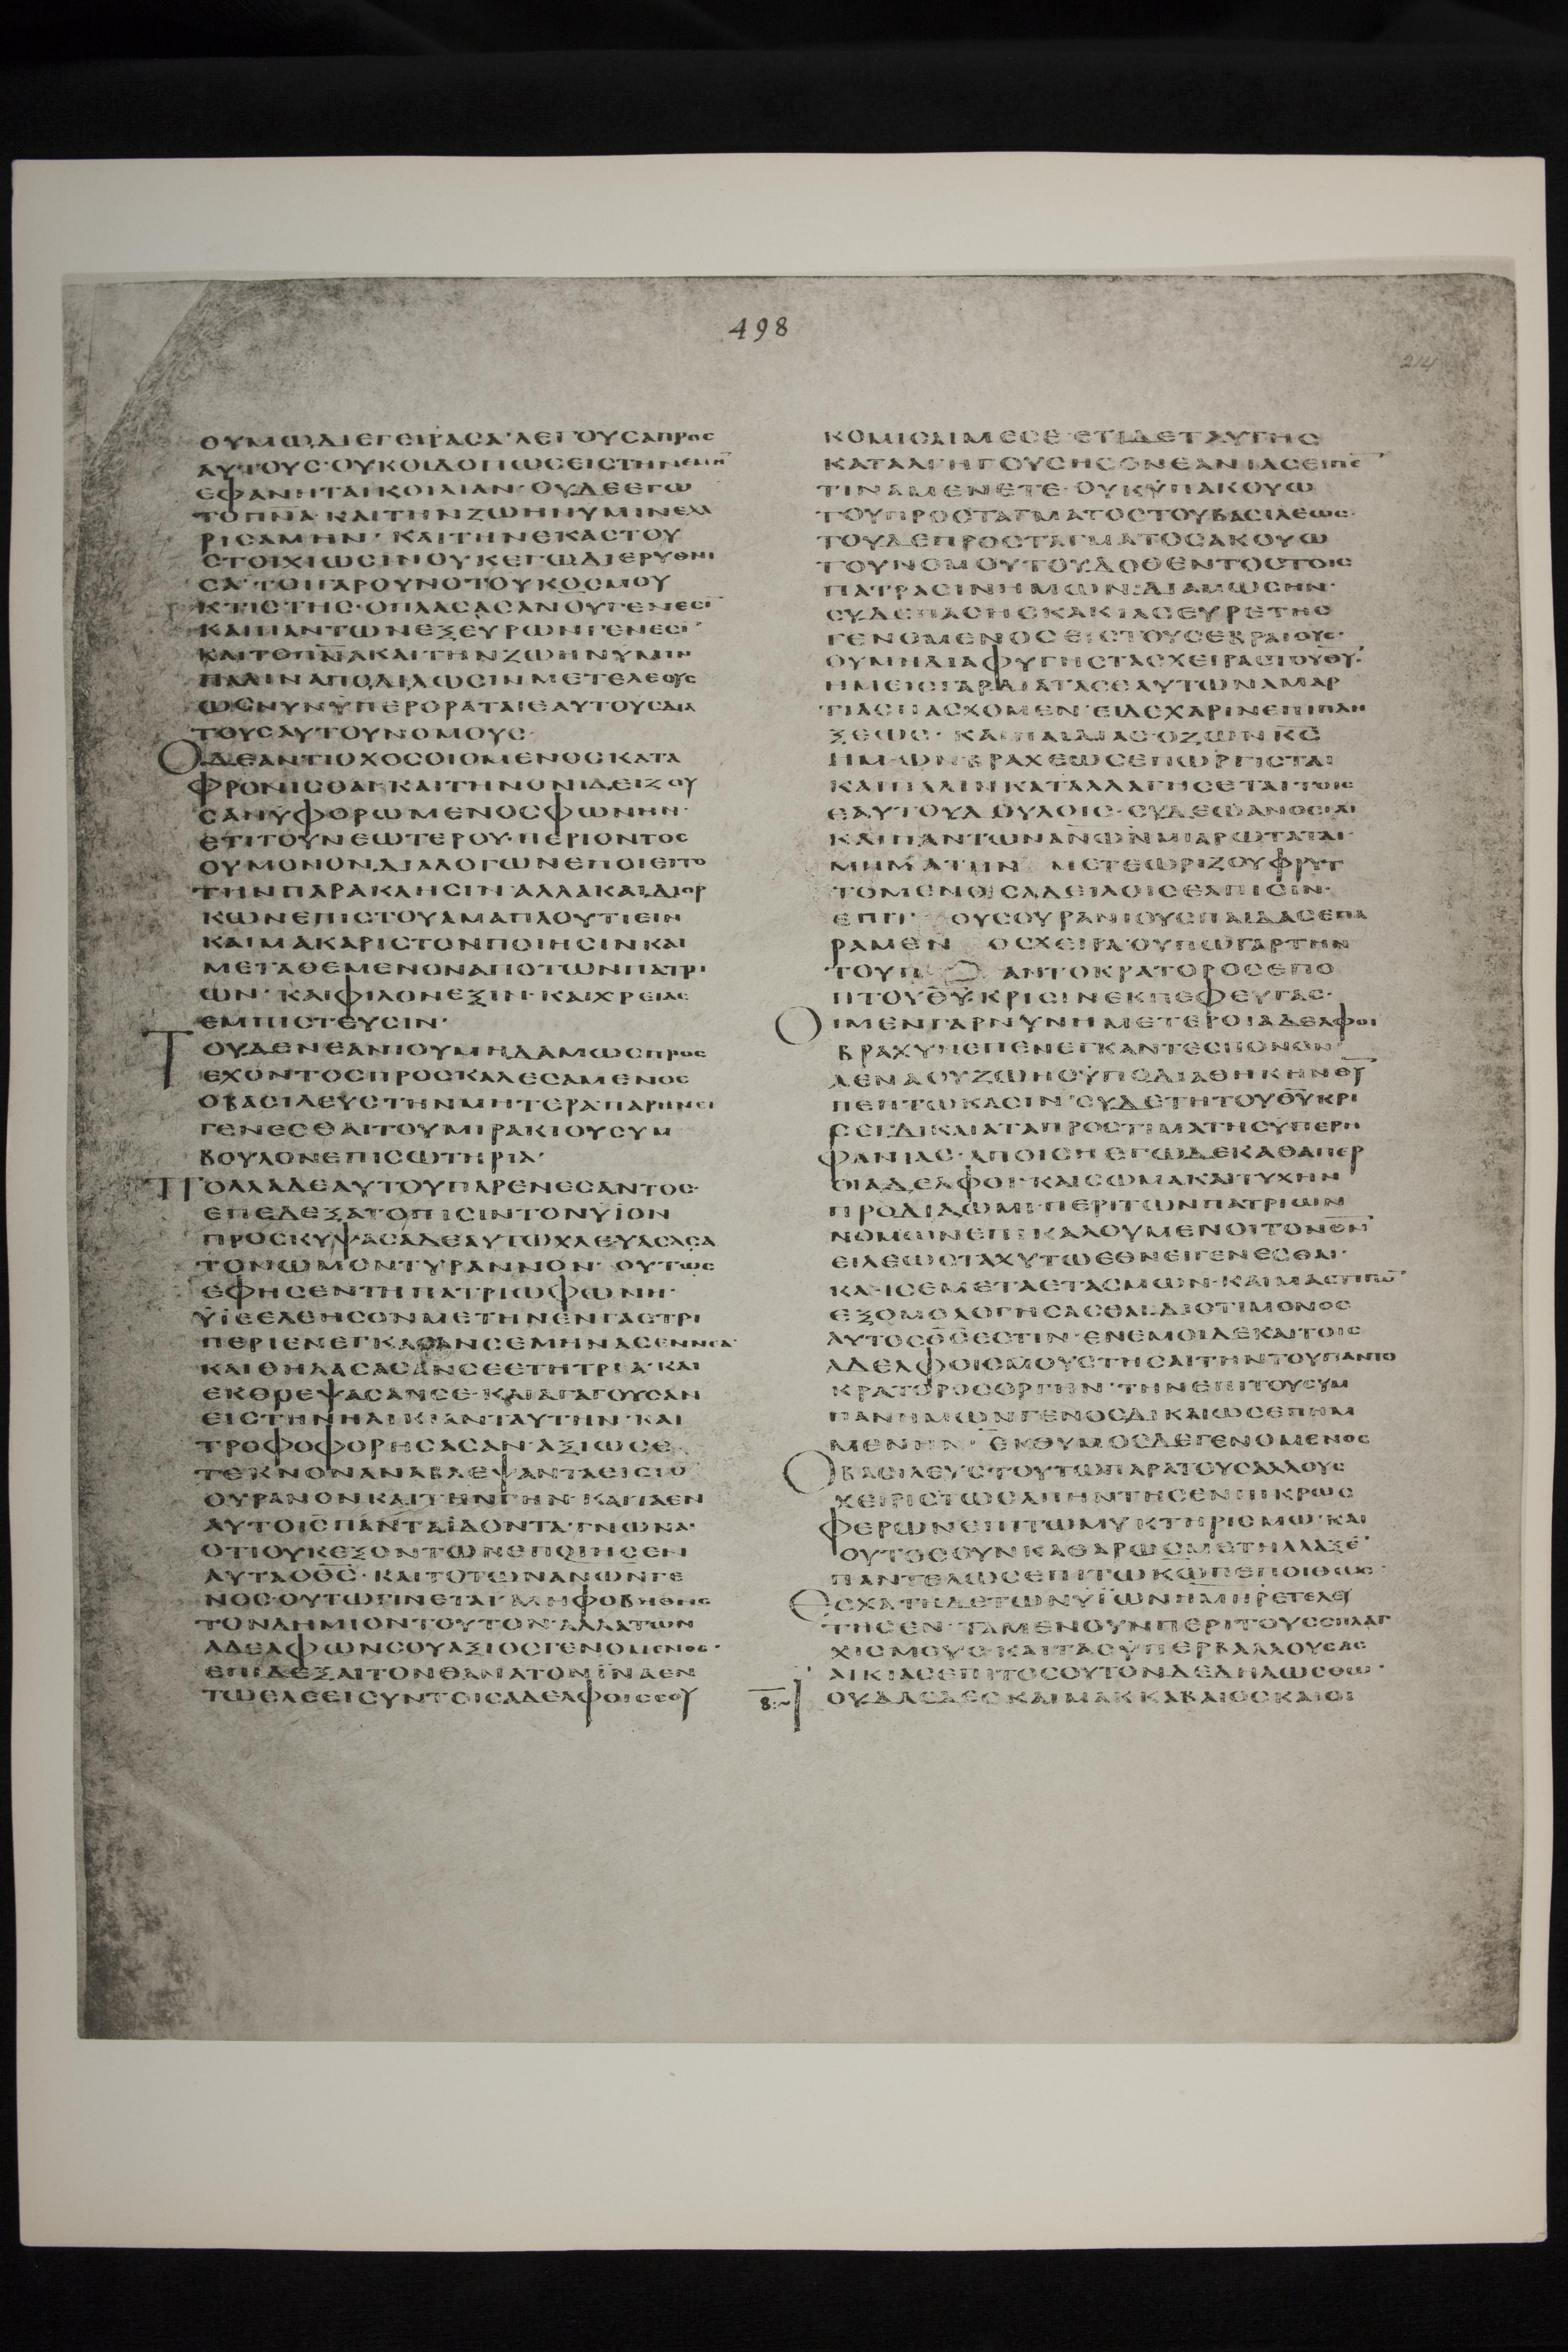 498
214
ΟΥΜΩΔΙΕΓΕΙΡΑCΑ ΛΕΓΟΥCΑΠΡΟC
ΑΥΤΟΥC·ΟΥΚΟΙΔΟΠΩCΕΙCΤΗΝΕΜΗ̅
ΕΦΑΝΗΤΑΙΚΟΙΛΙΑΝ·ΟΥΔΕΕΓΩ
ΤΟΠΝ̅Α·ΚΑΙΤΗΝΖΩΗΝΥΜΙΝΕΧΑ
ΡΙCΑΜΗΝ·ΚΑΙΤΗΝΕΚΑCΤΟΥ
CΤΟΙΧΙΩCΙΝΟΥΚΕΓΩΔΙΕΡΥΘΜΙ
CΑ·ΤΟΙΓΑΡΟΥΝΟΤΟΥΚΟCΜΟΥ
ΚΤΙCΤΗC·ΟΠΛΑCΑCΑΝΟΥΓΕΝΕCΙ̅
ΚΑΙΠΑΝΤΩΝΕΞΕΥΡΩΝΓΕΝΕCΙ̅
ΚΑΙΤΟΠΝ̅ΑΚΑΙΤΗΝΖΩΗΝΥΜΙΝ
ΠΑΛΙΝΑΠΟΔΙΔΩCΙΝΜΕΤΕΛΕΟΥC
ΩCΝΥΝΫΠΕΡΟΡΑΤΑΙΕΑΥΤΟΥCΔΙΑ
ΤΟΥCΑΥΤΟΥΝΟΜΟΥC·
ΟΔΕΑΝΤΙΟΧΟCΟΙΟΜΕΝΟCΚΑΤΑ
ΦΡΟΝΙCΘΑΙ·ΚΑΙΤΗΝΟΝΙΔΕΙΖΟΥ
CΑΝΥΦΟΡΩΜΕΝΟCΦΩΝΗΝ·
ΕΤΙΤΟΥΝΕΩΤΕΡΟΥ·ΠΕΡΙΟΝΤΟC
ΟΥΜΟΝΟΝΔΙΑΛΟΓΩΝΕΠΟΙΕΙΤΟ
ΤΗΝΠΑΡΑΚΛΗCΙΝ·ΑΛΛΑΚΑΙΔΙΟΡ
ΚΩΝΕΠΙCΤΟΥΑΜΑΠΛΟΥΤΙΕΙΝ
ΚΑΙΜΑΚΑΡΙCΤΟΝΠΟΙΗCΙΝΚΑΙ
ΜΕΤΑΘΕΜΕΝΟΝΑΠΟΤΩΝΠΑΤΡΙ
ΩΝ·ΚΑΙΦΙΛΟΝΕΞΙΝ·ΚΑΙΧΡΕΙΑC
ΕΜΠΙCΤΕΥCΙΝ·
ΤΟΥΔΕΝΕΑΝΙΟΥΜΗΔΑΜΩCΠΡΟC
ΕΧΟΝΤΟCΠΡΟCΚΑΛΕCΑΜΕΝΟC
ΟΒΑCΙΛΕΥCΤΗΝΜΗΤΕΡΑΠΑΡΗΝΕΙ
ΓΕΝΕCΘΑΙΤΟΥΜΙΡΑΚΙΟΥCΥΜ
ΒΟΥΛΟΝΕΠΙCΩΤΗΡΙΑ·
ΠΟΛΛΑΔΕΑΥΤΟΥΠΑΡΕΝΕCΑΝΤΟC·
ΕΠΕΔΕΞΑΤΟΠΙCΙΝΤΟΝΥΪΟΝ
ΠΡΟCΚΥΨΑCΑΔΕΑΥΤΩΧΛΕΥΑCΑCΑ
ΤΟΝΩΜΟΝΤΥΡΑΝΝΟΝ·ΟΥΤΩC
ΕΦΗCΕΝΤΗΠΑΤΡΙΩΦΩΝΗ·
ΫΙΕΕΛΕΗCΟΝΜΕΤΗΝΕΝΓΑCΤΡΙ
ΠΕΡΙΕΝΕΓΚΑCΑΝCΕΜΗΝΑCΕΝΝΕΑ·
ΚΑΙΘΗΛΑCΑCΑΝCΕΕΤΗΤΡΙΑ·ΚΑΙ
ΕΚΘΡΕΨΑCΑΝCΕ·ΚΑΙΑΓΑΓΟΥCΑΝ
ΕΙCΤΗΝΗΛΙΚΙΑΝΤΑΥΤΗΝ·ΚΑΙ
ΤΡΟΦΟΦΟΡΗCΑCΑΝ·ΑΞΙΩCΕ
ΤΕΚΝΟΝΑΝΑΒΛΕΨΑΝΤΑΕΙCΤΟ̅
ΟΥΡΑΝΟΝΚΑΙΤΗΝΓΗΝ·ΚΑΙΤΑΕΝ
ΑΥΤΟΙCΠΑΝΤΑΪΔΟΝΤΑ·ΓΝΩΝΑΙ
ΟΤΙΟΥΚΕΞΟΝΤΩΝΕΠΟΙΗCΕΝ
ΑΥΤΑΟΘ̅C̅·ΚΑΙΤΟΤΩΝΑΝ̅Ω̅Ν̅ΓΕ
ΝΟC·ΟΥΤΩΓΙΝΕΤΑΙ·ΜΗΦΟΒΗΘΗC
ΤΟΝΔΗΜΙΟΝΤΟΥΤΟΝ·ΑΛΛΑΤΩΝ
ΑΔΕΛΦΩΝCΟΥΑΞΙΟCΓΕΝΟΜΕΝΟC·
ΕΠΙΔΕΞΑΙΤΟΝΘΑΝΑΤΟΝΪΝΑΕΝ
ΤΩΕΛΕΕΙCΥΝΤΟΙCΑΔΕΛΦΟΙCCΟΥ
ΚΟΜΙCΑΙΜΕCΕ·ΕΤΙΔΕΤΑΥΤΗC
ΚΑΤΑΛΗΓΟΥCΗCΟΝΕΑΝΙΑCΕΙΠΕ̅
ΤΙΝΑΜΕΝΕΤΕ·ΟΥΚΫΠΑΚΟΥΩ
ΤΟΥΠΡΟCΤΑΓΜΑΤΟCΤΟΥΒΑCΙΛΕΩC·
ΤΟΥΔΕΠΡΟCΤΑΓΜΑΤΟCΑΚΟΥΩ
ΤΟΥΝΟΜΟΥΤΟΥΔΟΘΕΝΤΟCΤΟΙC
ΠΑΤΡΑCΙΝΗΜΩΝ·ΔΙΑΜΩCΗΝ·
CΥΔΕΠΑCΗCΚΑΚΙΑCΕΥΡΕΤΗC
ΓΕΝΟΜΕΝΟCΕΙCΤΟΥCΕΒΡΑΙΟΥC·
ΟΥΜΗΔΙΑΦΥΓΗCΤΑCΧΕΙΡΑCΤΟΥΘ̅Υ̅·
ΗΜΕΙCΓΑΡΔΙΑΤΑCΕΑΥΤΩΝΑΜΑΡ
ΤΙΑCΠΑCΧΟΜΕΝ·ΕΙΔΕΧΑΡΙΝΕΠΙΠΛΗ
ΞΕΩC·ΚΑΙΠΑΙΔΙΑC·ΟΖΩΝΚ̅C̅
ΗΜΩΝΒΡΑΧΕΩCΕΠΩΡΓΙCΤΑΙ
ΚΑΙΠΑΛΙΝΚΑΤΑΛΛΑΓΗCΕΤΑΙΤΟΙC
ΕΑΥΤΟΥΔΟΥΛΟΙC·CΥΔΕΩΑΝΟCΙΑΙ
ΚΑΙΠΑΝΤΩΝΑΝ̅Ω̅Ν̅ΜΙΑΡΩΤΑΤΑΙ·
ΜΗΜΑΤΗΝ ΜΕΤΕΩΡΙΖΟΥΦΡΥΤ
ΤΟΜΕΝΟCΑΔΕΙΛΟΙCΕΛΠΙCΙΝ·
ΕΠΙ ΟΥCΟΥΡΑΝΙΟΥCΠΑΙΔΑCΕΠΑ
ΡΑΜΕΝ ΟCΧΕΙΡΑ·ΟΥΠΩΓΑΡΤΗΝ
ΤΟΥΠ ΑΝΤΟΚΡΑΤΟΡΟCΕΠΟ
ΠΤΟΥΘ̅Υ̅·ΚΡΙCΙΝΕΚΠΕΦΕΥΓΑC·
ΟΙΜΕΝΓΑΡΝΥΝΗΜΕΤΕΡΟΙΑΔΕΛΦΟΙ
ΒΡΑΧΥΝΕΠΕΝΕΓΚΑΝΤΕCΠΟΝΟΝ
ΑΕΝΑΟΥΖΩΗCΫΠΟΔΙΑΘΗΚΗΝΘ̅Υ̅
ΠΕΠΤΩΚΑCΙΝ·CΥΔΕΤΗΤΟΥΘ̅Υ̅ΚΡΙ
CΕΙΔΙΚΑΙΑΤΑΠΡΟCΤΙΜΑΤΗCΥΠΕΡΗ
ΦΑΝΙΑC·ΑΠΟΙCΗ·ΕΓΩΔΕΚΑΘΑΠΕΡ
ΟΙΑΔΕΛΦΟΙ·ΚΑΙCΩΜΑΚΑΙΤΥΧΗΝ
ΠΡΟΔΙΔΩΜΙ·ΠΕΡΙΤΩΝΠΑΤΡΙΩΝ
ΝΟΜΩΝΕΠΙΚΑΛΟΥΜΕΝΟΙΤΟΝΘ̅Ν̅
ΕΙΛΕΩCΤΑΧΥΤΩΕΘΝΕΙΓΕΝΕCΘΑΙ·
ΚΑΙCΕΜΕΤΑΕΤΑCΜΩΝ·ΚΑΙΜΑCΤΙΓΩ̅
ΕΞΟΜΟΛΟΓΗCΑCΘΑΙ·ΔΙΟΤΙΜΟΝΟC
ΑΥΤΟCΘ̅C̅ΕCΤΙΝ·ΕΝΕΜΟΙΔΕΚΑΙΤΟΙC
ΑΔΕΛΦΟΙCΜΟΥCΤΗCΑΙΤΗΝΤΟΥΠΑΝΤΟ
ΚΡΑΤΟΡΟCΟΡΓΗΝ·ΤΗΝΕΠΙΤΟΥCΥΜ
ΠΑΝΗΜΩΝΓΕΝΟCΔΙΚΑΙΩCΕΠΗΜ
ΜΕΝΗΝ·ΕΚΘΥΜΟCΔΕΓΕΝΟΜΕΝΟC
ΟΒΑCΙΛΕΥCΤΟΥΤΩΠΑΡΑΤΟΥCΑΛΛΟΥC
ΧΕΙΡΙCΤΩCΑΠΗΝΤΗCΕΝΠΙΚΡΩC
ΦΕΡΩΝΕΠΙΤΩΜΥΚΤΗΡΙCΜΩ·ΚΑΙ
ΟΥΤΟCΟΥΝΚΑΘΑΡΩCΜΕΤΗΛΛΑΞΕ̅
ΠΑΝΤΕΛΩCΕΠΙΤΩΚ̅Ω̅ΠΕΠΟΙΘΩC·
ΕCΧΑΤΗΔΕΤΩΝΥΪΩΝΗΜ̅Η̅Ρ̅ΕΤΕΛΕΥ
ΤΗCΕΝ·ΤΑΜΕΝΟΥΝΠΕΡΙΤΟΥCCΠΛΑΓ
ΧΙCΜΟΥC·ΚΑΙΤΑCΫΠΕΡΒΑΛΛΟΥCΑC
ΑΙΚΙΑCΕΠΙΤΟCΟΥΤΟΝΔΕΔΗΛΩCΘΩ·
ΟΥΔΑCΔΕΟΚΑΙΜΑΚΚΑΒΑΙΟCΚΑΙΟΙ